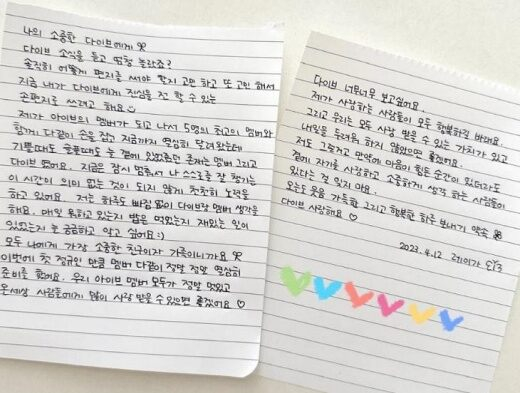 나의 소중한 다이브에게
다이브 소식을 듣고 엄청 놀랐죠?
솔직히 어떻게 편지를 써야 할지 고민 하고 또 고민 해서
지금 내가 다이브에게 진심을 전 할 수 있는
손편지를 쓰려고 해요
제가 아이브의 멤버가 되고 나서 5명의 최고의 멤버와
함께 다같이 손을 잡고 지금까지 열심히 달려왔는데
기쁠때도 슬플때도 늘 곁에 있어줬던 존재는 멤버 그리고
다이브 였어요. 지금은 잠시 멈춰서 나 스스로를 잘 챙기는
이 시간이 의미 없는 것이 되지 않게 천천히 노력을
하고 있어요. 저는 하루도 빠짐 없이 다이브랑 멤버 생각을
해요. 매일 뭐하고 있는지 밥은 먹었는지 재밌는 일이
있었는지 늘 궁금하고 알고 싶어요 :)
모두 나에게 가장 소중한 친구이자 가족이니까요
이번에 첫 정규인 만큼 멤버 다같이 정말 정말 열심히
준비를 했어요. 우리 아이브 멤버 모두가 정말 멋있고
온세상 사람들에게 많이 사랑 받을 수 있었으면 좋겠어요 ♡
다이브 너무너무 보고싶어요.
제가 사랑하는 사람들이 모두 행복하길 바래요.
그리고 우리는 모두 사랑 받을 수 있는 가치가 있고
내일을 두려워 하지 않았으면 좋겠어요.
저도 그렇고 만약에 마음이 힘든 순간이 있더라도
곁에 자기를 사랑하고 소중하게 생각 하는 사람들이
있다는 걸 잊지 마요.
오늘도 웃음 가득한 그리고 행복한 하루 보내기 약속
다이브 사랑해요 ♡
2023. 4.12 레이가